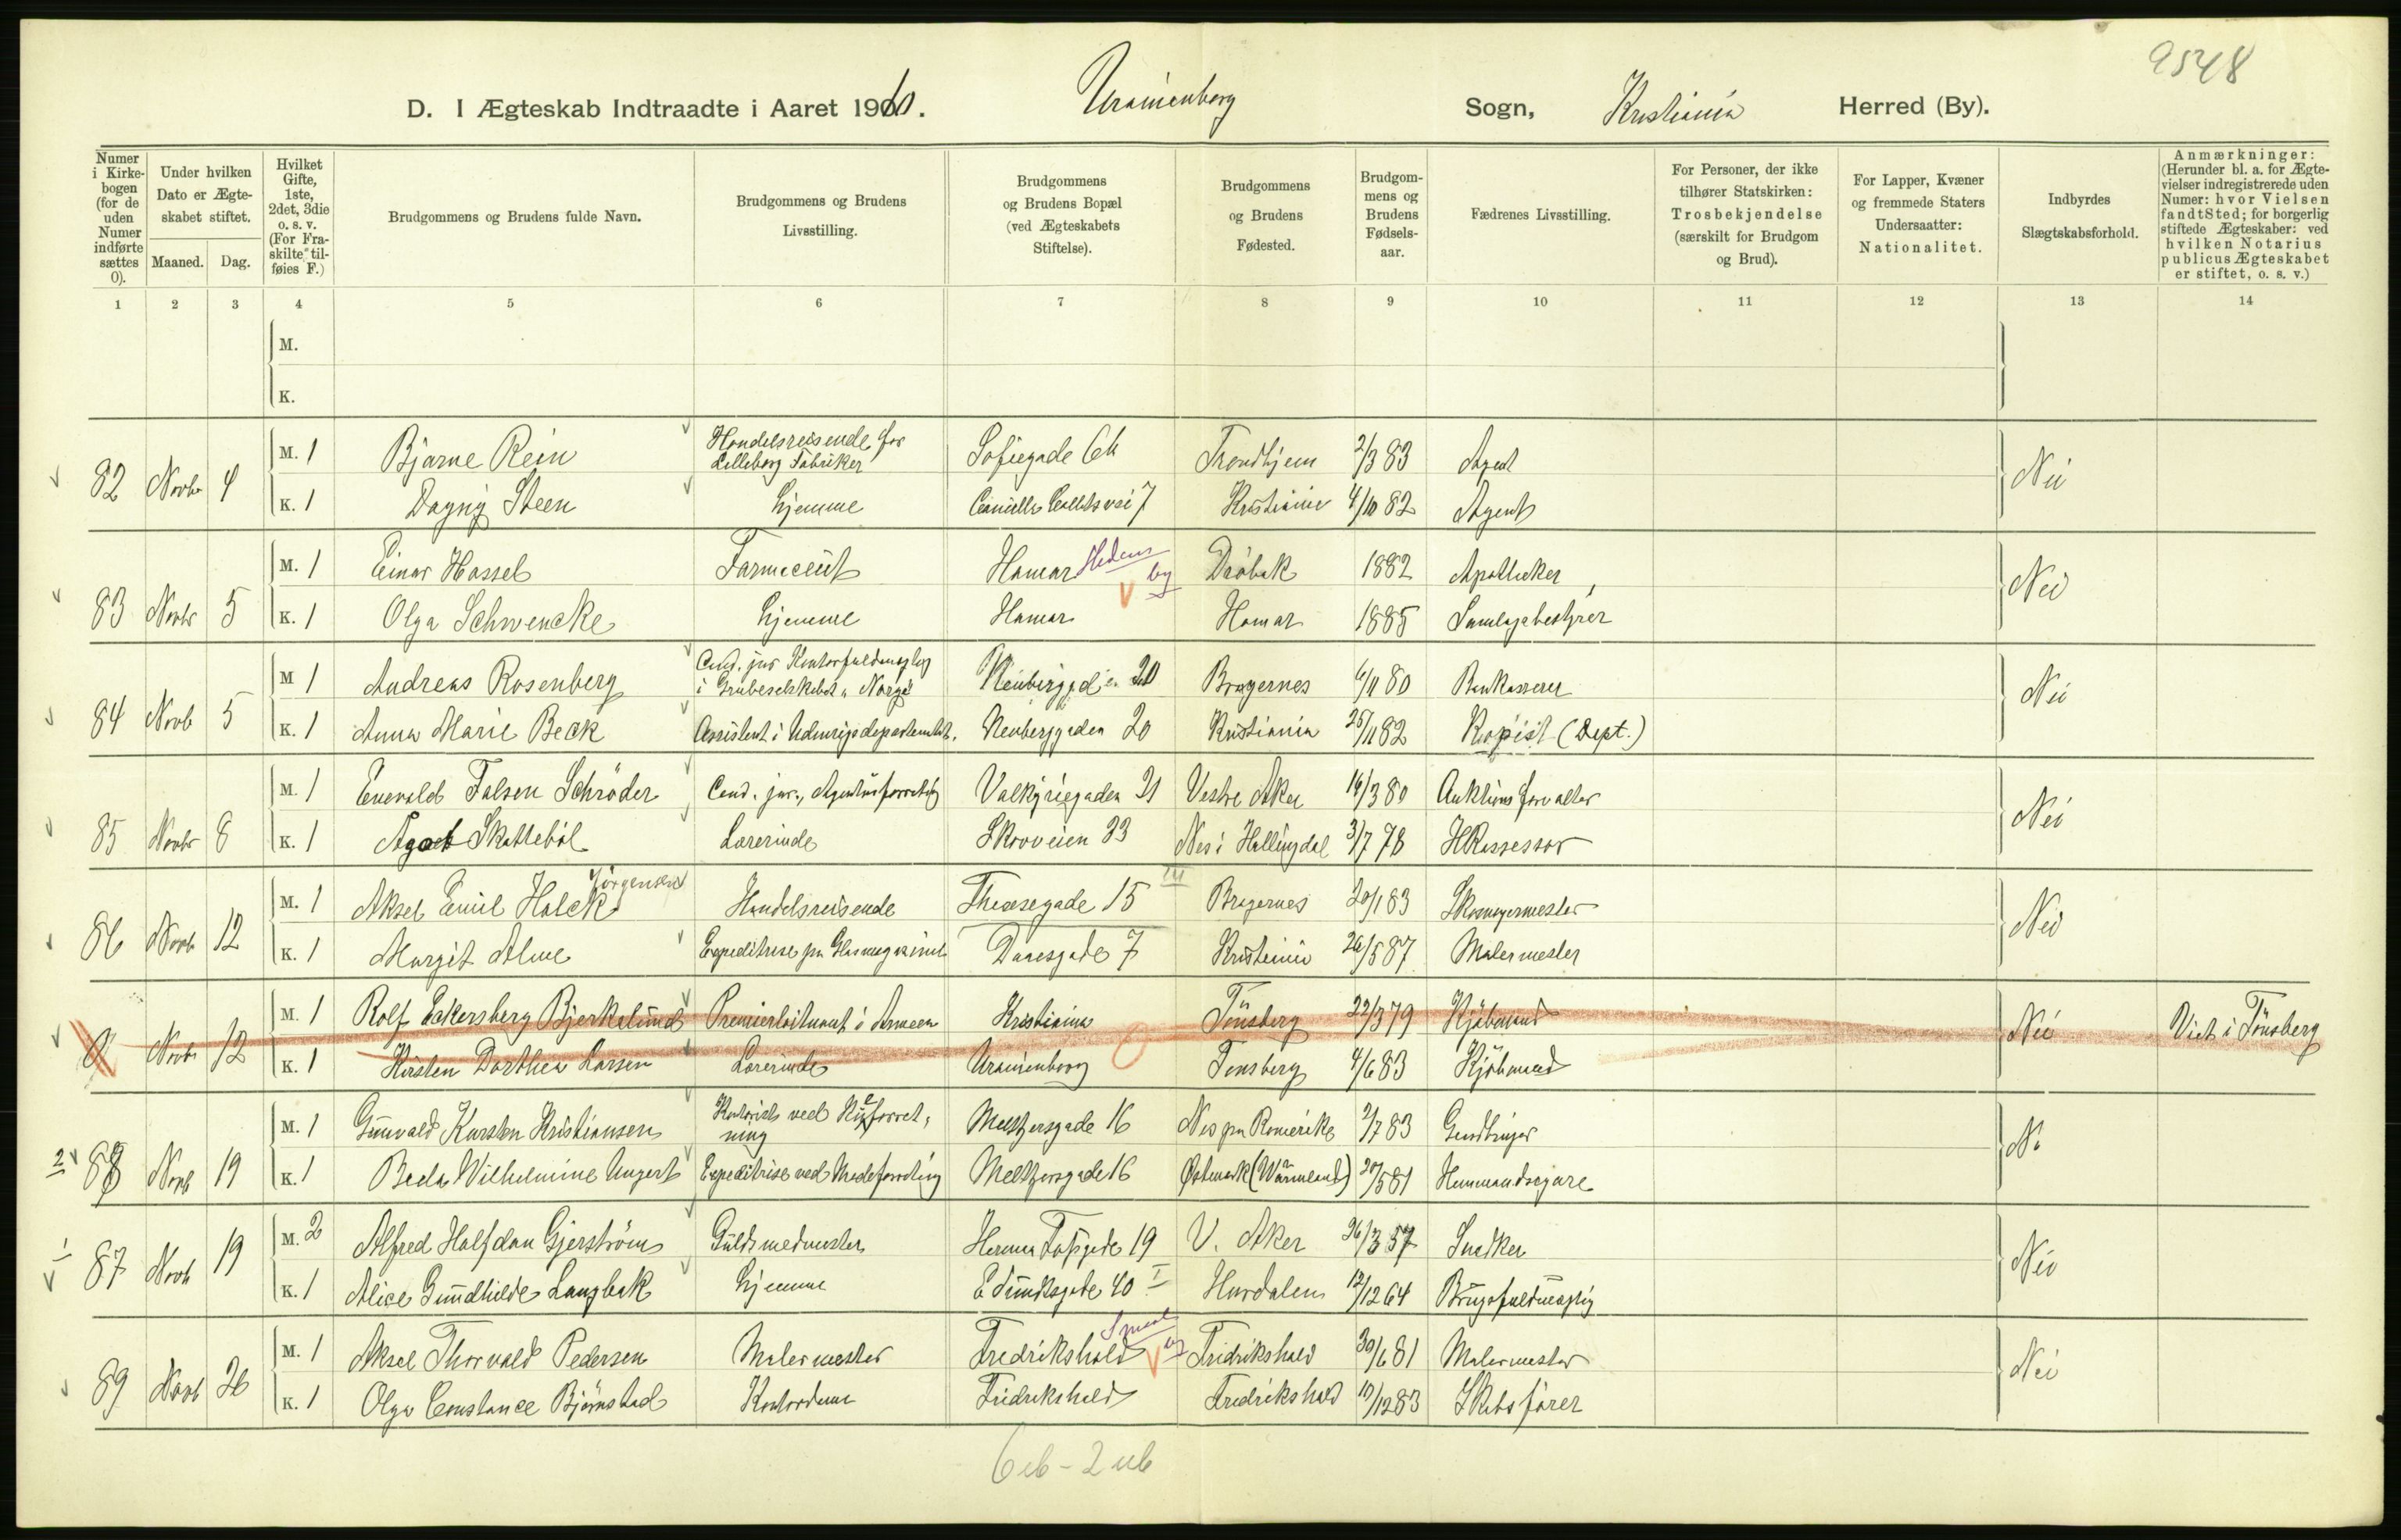 9548
D. I Ægteskab Indtraadte i Aaret 1910. Uranienborg Sogn, Kristiania Herred (By).
Numer i Kirkebogen (for de uden Numer indførte sættes 0).
Under hvilken Dato er Ægteskabet stiftet.
Maaned. Dag.
Hvilket Gifte, 1ste, 2det, 3die o. s. v. (For Fraskilte tilføies F.)
Brudgommens og Brudens fulde Navn.
Brudgommens og Brudens Livsstilling.
Brudgommens og Brudens Bopæl (ved Ægteskabets Stiftelse).
Brudgommens og Brudens Fødested.
Brudgommens og Brudens Fødselsaar.
Fædrenes Livsstilling.
For Personer, der ikke tilhører Statskirken: Trosbekjendelse (særskilt for Brudgom og Brud).
For Lapper, Kvæner og fremmede Staters Undersaatter: Nationalitet.
Indbyrdes Slægtskabsforhold.
Anmærkninger: (Herunder bl. a. for Ægtevielser indregistrerede uden Numer: hvor Vielsen fandt Sted; for borgerlig stiftede Ægteskaber: ved hvilken Notarius publicus Ægteskabet er stiftet, o. s. v.)
1 2 3 4 5 6 7 8 9 10 11 12 13 14
M.
K.
82 Novbr 4 M. 1 Bjarne Rein Handelsreisende for Lilleborg Fabriker Sofiegade 6b Trondhjem 2/3 83 Agent Nei
K. 1 Dagny Steen hjemme Camilla Colletts vei 7 Kristiania 4/10 82 Agent
83 Novbr 5 M. 1 Einar Hassel Farmaceut Hamar Hedem by Dröbak 1882 Apotheker Nei
K. 1 Olga Schwencke hjemme Hamar Hamar 1885 Samlagsbestyrer
84 Novb 5 M 1 Andreas Rosenberg Cand. jur Kontorfuldmægtig i Grubeselskabet "Norge" Neuberggaden 20 Bragernes 6/11 80 Bankkasserer Nei
K. 1 Anna Marie Beck Assistent i Udenrigsdepartementet. Neuberggaden 20 Kristiania 25/11 82 Kopist (Dept.)
85 Novbr 8 M. 1 Enevald Falsen Schröder Cand. jur., Agenturforretning Valkyriegaden 21 Vestre Aker 16/3 80 Auktionsforvalter Nei
K. 1 Agot Skatteböl Lærerinde Skovveien 33 Nes i Hallingdal 3/7 78 HRassessor
86 Novb 12 M. 1 Aksel Emil Holck Jörgensen Handelsreisende Theresegade 15 III Bragernes 20/1 83 Skomagermester Nei
K. 1 Margit Alme Expeditrise paa Glasmagasinet Daasgade 7 Kristiania 26/5 87 Malermester
0 Novbr 12 M. 1 Rolf Eckersberg Bjerkelund Premierløitnant i Armeen Kristiania Tönsberg 22/3 79 Kjöbmand Nei Viet i Tönsberg
K. 1 Kirsten Dorthea Larsen Lærerinde Uranienborg Tönsberg 4/6 83 Kjöbmand
2 88 Novb 19 M. 1 Gunvald Karsten Kristiansen Kontorist ved forretning Meltzersgade 16 Nes paa Romerike 2/7 83 Gaardbruger Nei
K. 1 Beda Wilhelmine Ungert Expeditrise ved Modeforretning Meltzersgade 16 Østmark (Wärmland) 20/5 81 Hemmandsegare
1 87 Novb 19 M. 2 Alfred Halfdan Gjerström Guldsmedmester Herman Fossgade 19 V. Aker 26/3 57 Snedker Nei
K. 1 Alice Gundhilde Langbak hjemme Eilert Sundtsgade 40 I Hurdalen 12/12 64 Brugsfuldmægtig
89 Novb 26 M. 1 Aksel Thorvald Pedersen Malermester Fredrikshald Smaal by Fridrikshald 30/6 81 Malermester Nei
K. 1 Olga Constance Björnstad Kontordame Fridrikshald Fredrikshald 19/12 83 Skibsförer
6 ub - 2 ub